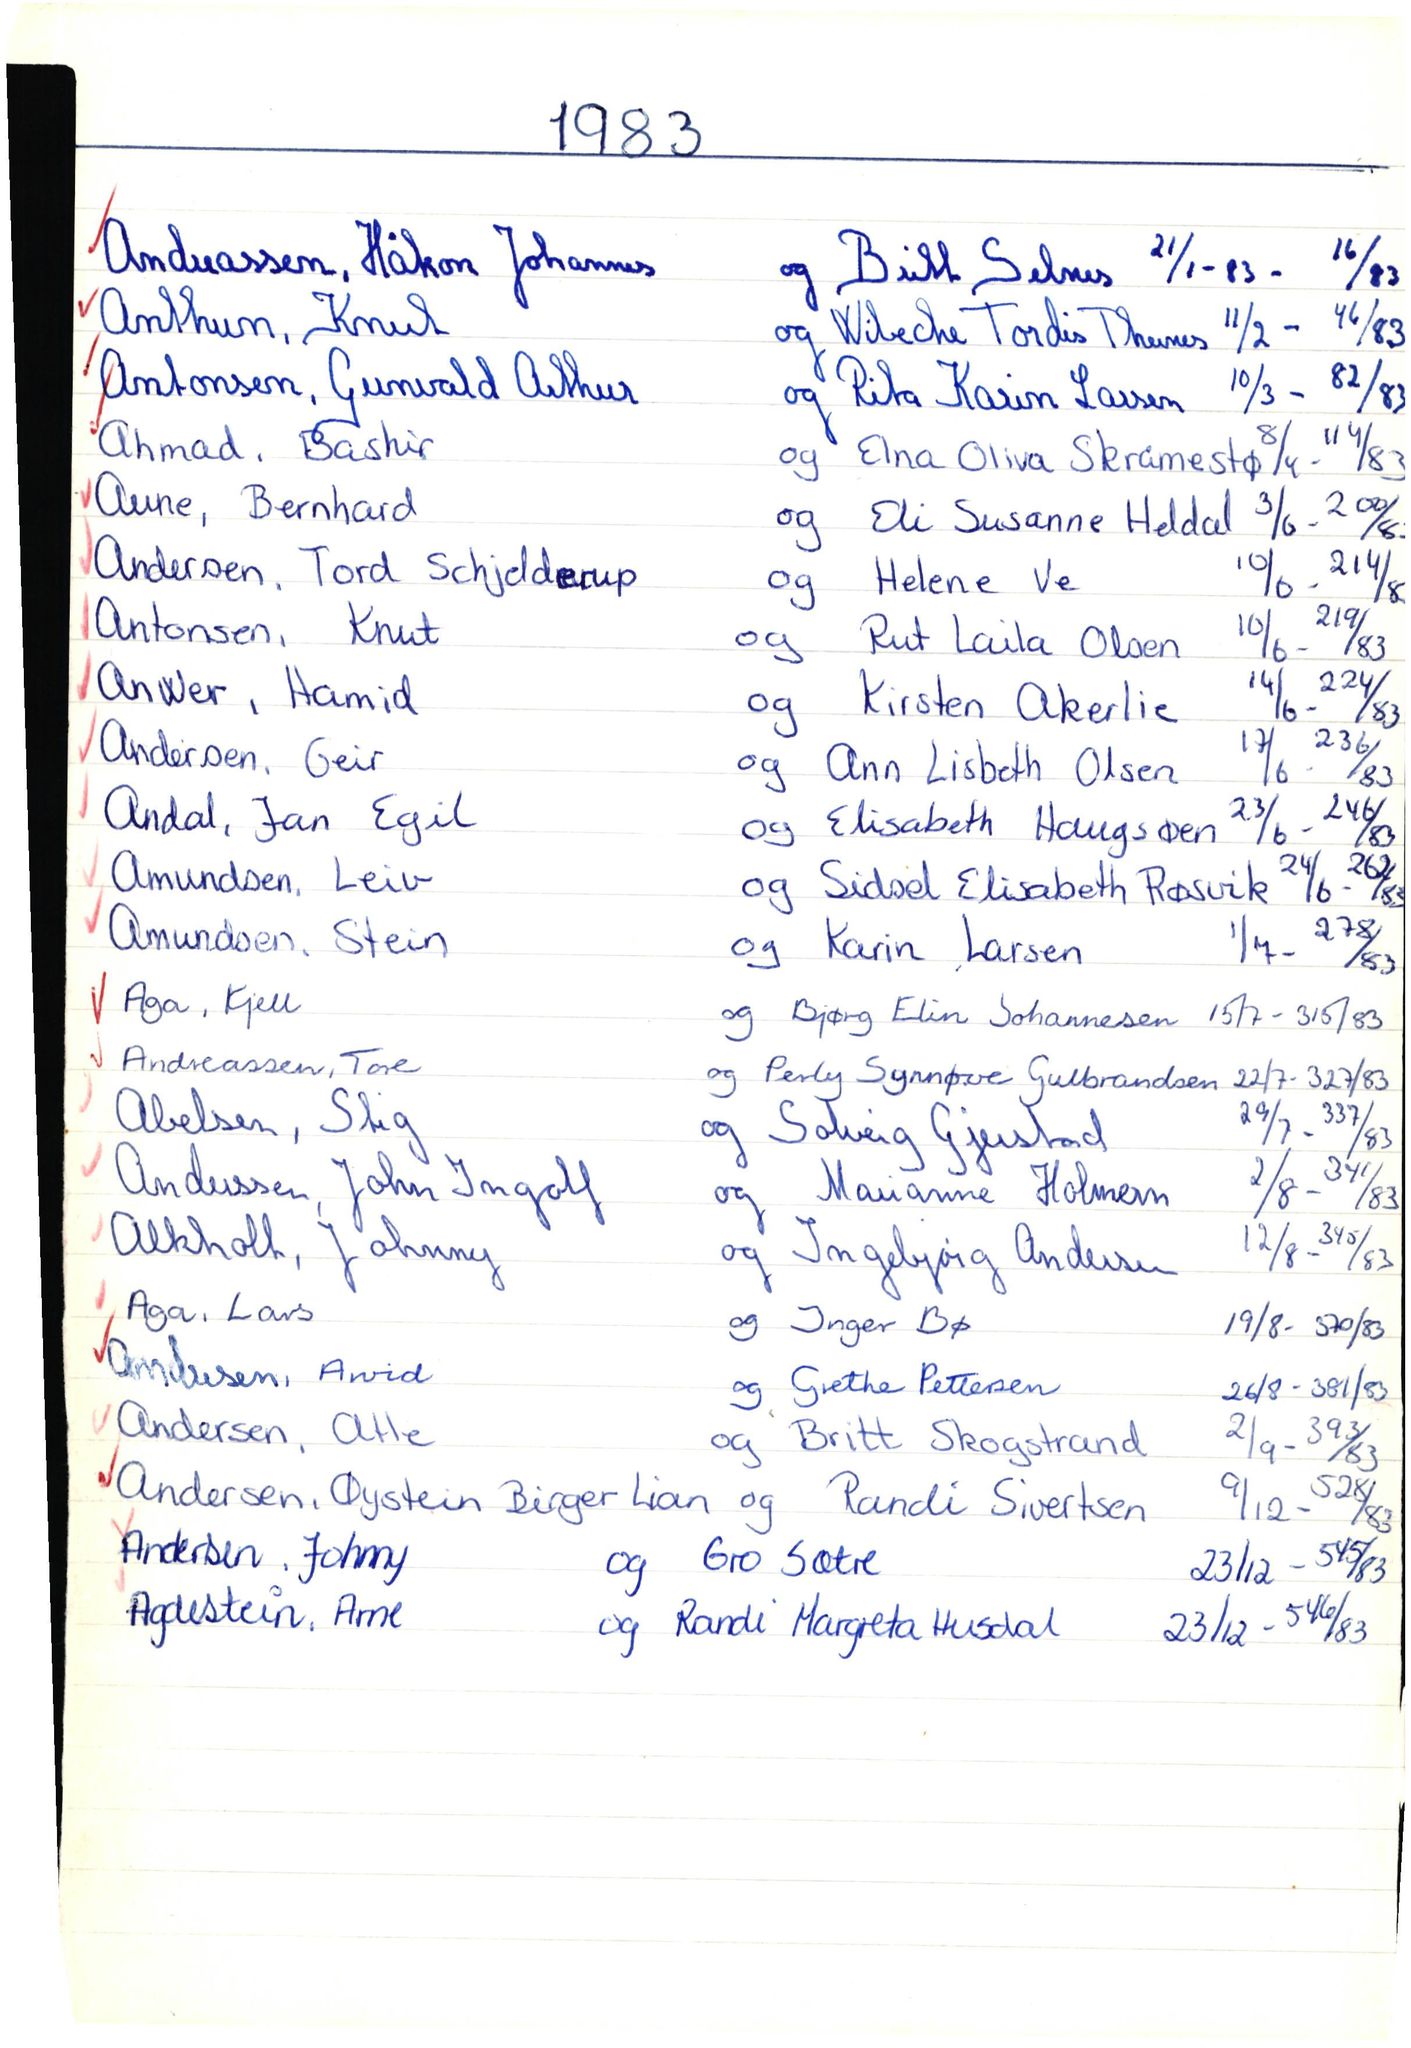 1983
Andreassen, Håkon Johannes og Britt Selnes 21/1-83 - 16/83
Anthun, Knut og Wibeche Tordis Thunes 11/2 - 46/83
Antonsen, Gunvald Arthur og Rita Karin Larsen 10/3 - 82/83
Ahmad, Bashir og Elna Oliva Skramestø 8/4 - 114/83
Aune, Bernhard og Eli Susanne Heldal 3/6 - 200/83
Andersen, Tord Schjelderup og Helene Ve 10/6 - 214/8
Antonsen, Knut og Rut Laila Olsen 10/6 - 219/83
Anwer, Hamid og Kirsten Akerlie 14/6 - 224/83
Andersen, Geir og Ann Lisbeth Olsen 17/6 - 236/83
Andal, Jan Egil og Elisabeth Haugsøen 23/6 - 246/83
Amundsen, Leiv og Sidsel Elisabeth Røsvik 24/6 - 262/83
Amundsen, Stein og Karin Larsen 1/7 - 278/83
Aga, Kjell og Bjørg Elin Johannesen 15/7 - 315/83
Andreassen, Tore og Perly Synnøve Gulbrandsen 22/7 - 327/83
Abelsen, Stig og Solveig Gjerstad 29/7 - 337/83
Anderssen, John Ingolf og Marianne Holmern 2/8 - 341/83
Alkholt, Johnny og Ingebjørg Andersen 12/8 - 345/83
Aga, Lars og Inger Bø 19/8 - 370/83
Andersen, Arvid og Grethe Pettersen 26/8 - 381/83
Andersen, Atle og Britt Skogstrand 2/9 - 393/83
Andersen, Øystein Birger Lian og Randi Sivertsen 9/12 - 528/83
Andersen, Johnny og Gro Sætre 23/12 - 545/83
Agdestein, Arne og Randi Margreta Husdal 23/12 - 546/83